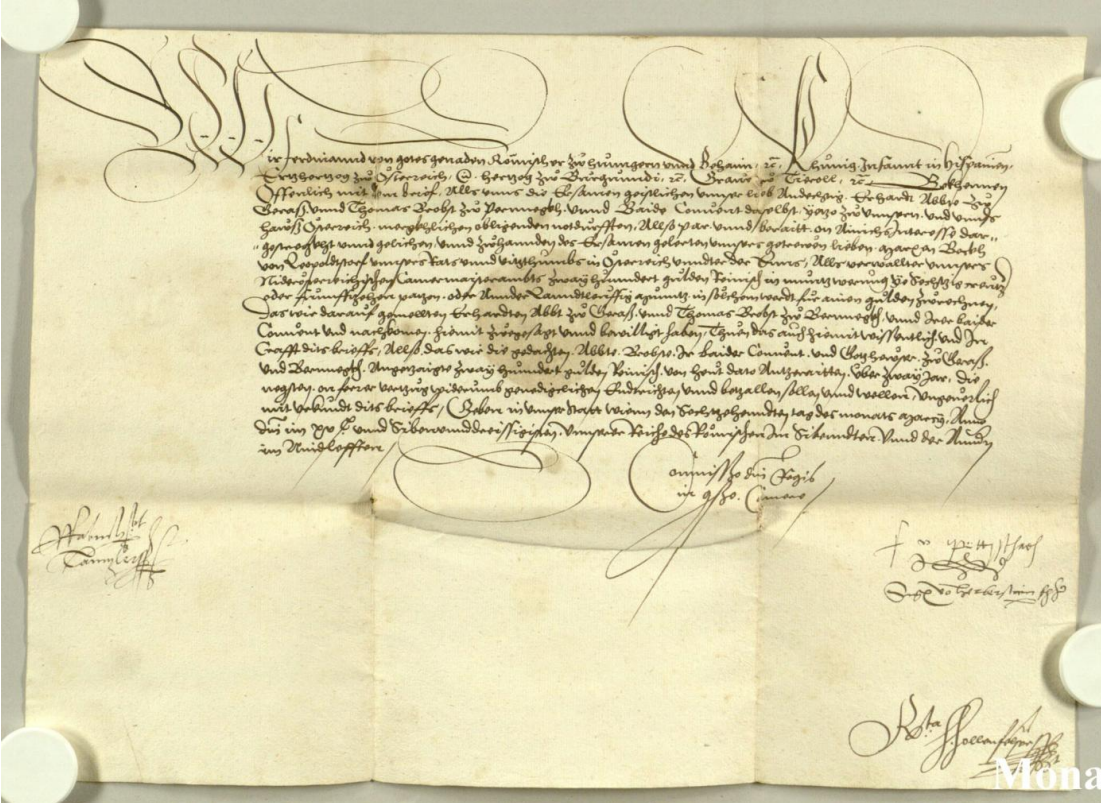 Wir Ferdinannd von gotes genaden Römischer zu Hunngern unnd Behaim, rc. Khunig Infannt in Hispanien,
Ertzhertzog zu Österreich, Hertzog zu Burgundi, rc. Grave zu Tiroll, rc. Bekhennen
Offennlich mit dem brief, Alls unns die Ersamen geistlichen unnser lieb Andechtig Erhardt Abbte zu
Geraß, unnd Thomas Brobst zu Pernnegkh, unnd Baide Convent daselbst, yetzo zu unnsern, und unnsers
hawß Österreich merghlichen obligenden notdurfften, Allso par unnd beraitt on Ainichs Interesse dar
gestregkht unnd gelichen, unnd zuhannden des Ersamen gelerten unnsers getrewen lieben Marxen Beckh
von Leopoldstorf unnsers Rats unnd vitzthumbs in Österreich unndter der Enns, Alls verwallter unnsers
Niderösterreichischen Camermaisterambts zway hunndert gulden Reinisch in munntz werung ye Sechtzig creutzer
oder funnffzehen patzen, oder Annder Lanndtleuffig munntz in solchem werdt für ainen gulden zurechnen,
Das wir darauf gemellten Erhardten Abbt zu Geraß, unnd Thomas Brobst zu Bernnegkh, unnd Irer baider
Convent und nachkomen, hiemit zuegesagt unnd bewilligt haben, Thuen das auch hiemit wissentlich, und In
Crafft dits brieffs, Allso, das wir die gedachten Abbte, Brobste, Ir Baider Convent, und Gotzheuser zu Geraß,
und Bernnegkh, Angetzaigte zway hunndert gulden Reinisch, von heut dato Antzeraitten, über zway Jar, die
negsten, on ferrer vertzug widerumb genedigclichen Enndtrichten unnd betzallen sollen unnd wellen, ungeverlich
mit urkundt dits brieffs, Geben in unnser Statt Wienn den Sechtzehenndten tag des monats Marcy, Anno
dni im xvC unnd Sibenunnddreissigisten, unnserer Reiche des Römischen Im Sibenndten, Unnd der Anndern
im Aindlefften
Commissio dni Regis
in Camera
Sigm von Herberstain